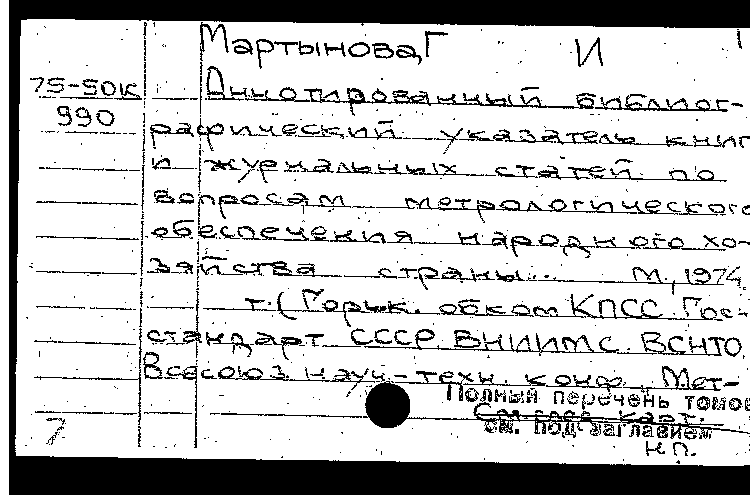 Мартынова, Г И
75-50к Аннотированный библиог-
990 рафический указатель книг
и журнальных статей по
вопросам метрологического
обеспечения народного хо-
зяйства страны... М., 1974.
т. ( Горьк. обком КПСС. Гос-
стандарт СССР. ВНИИМС. ВСНТО.
Всесоюз. науч-техн. конф. „Мет-
Полный перечень томов
См. след. карт.
см. под заглавием
7 н.п.